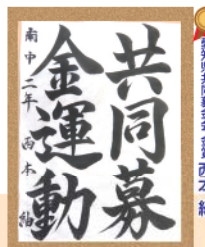 共同募
金運動
南中二年 西本 紬